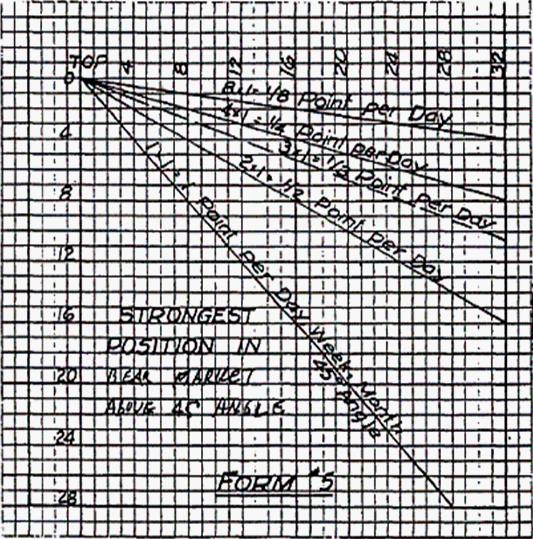 TOP 4 8 12 16 20 24 28 32
0
8x1= 1/8 Point per Day
4x1 = 1/4 Point per Day
3x1= 1/3 Point per Day
2x1= 1/2 Point per Day
1x1=1 Point per Day Week, Month
45° Angle
4
8
12
16 STRONGEST
POSITION IN
20 BEAR MARKET
ABOVE 45 ANGLE
24
28
FORM #5